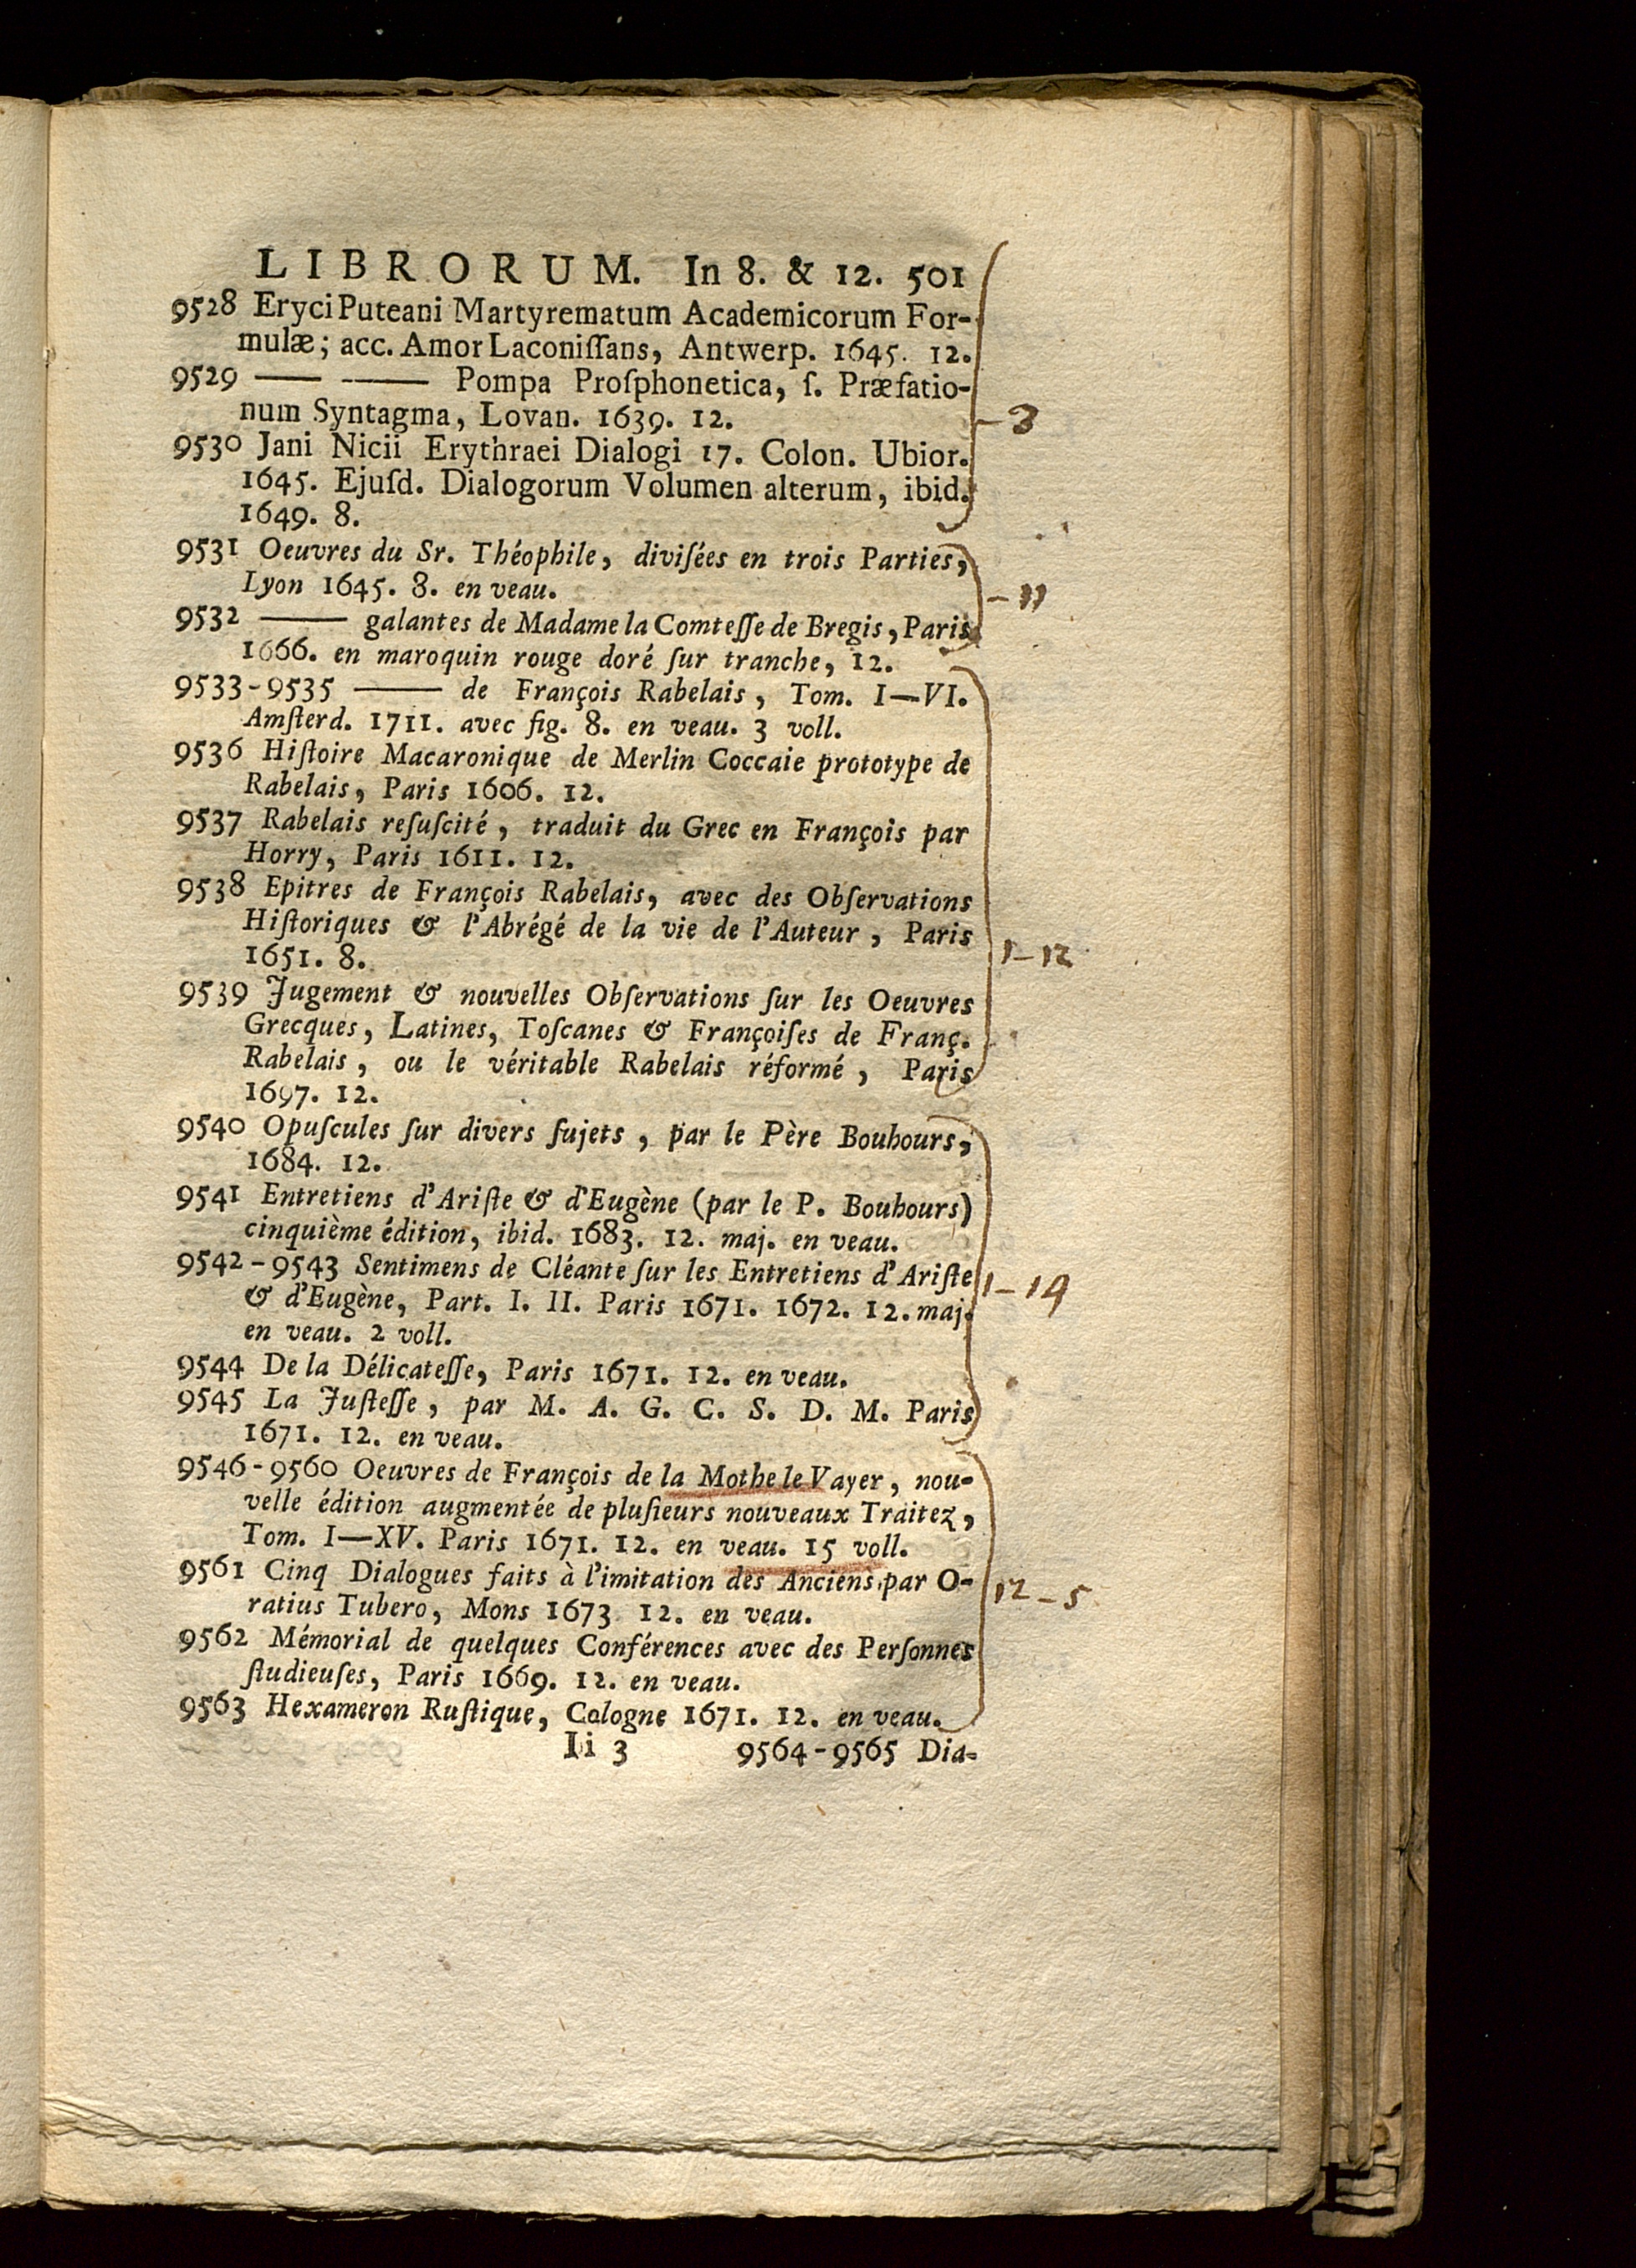 LIBRORUM. In 8. & 12. 501
9528 Eryci Puteani Martyrematum Academicorum For-
mulæ; acc. Amor Laconiſſans, Antwerp. 1645. 12.
9529 —— —— Pompa Proſphonetica, ſ. Præfatio-
num Syntagma, Lovan. 1639. 12.
- 3
9530 Jani Nicii Erythraei Dialogi 17. Colon. Ubior.
1645. Ejuſd. Dialogorum Volumen alterum, ibid.
1649. 8.
9531 Oeuvres du Sr. Théophile, diviſées en trois Parties,
Lyon 1645. 8. en veau.
- 11
9532 —— galantes de Madame la Comteſſe de Bregis, Paris
1666. en maroquin rouge doré ſur tranche, 12.
9533-9535 —— de François Rabelais, Tom. I—VI.
Amſterd. 1711. avec fig. 8. en veau. 3 voll.
9536 Hiſtoire Macaronique de Merlin Coccaie prototype de
Rabelais, Paris 1606. 12.
9537 Rabelais reſuſcité, traduit du Grec en François par
Horry, Paris 1611. 12.
9538 Epitres de François Rabelais, avec des Obſervations
Hiſtoriques & l'Abrégé de la vie de l'Auteur, Paris
1651. 8.
1-12
9539 Jugement & nouvelles Obſervations ſur les Oeuvres
Grecques, Latines, Toſcanes & Françoiſes de Franç.
Rabelais, ou le véritable Rabelais réformé, Paris
1697. 12.
9540 Opuſcules ſur divers ſujets, par le Père Bouhours,
1684. 12.
9541 Entretiens d'Ariſte & d'Eugène (par le P. Bouhours)
cinquième édition, ibid. 1683. 12. maj. en veau.
9542-9543 Sentimens de Cléante ſur les Entretiens d'Ariſte
& d'Eugène, Part. I. II. Paris 1671. 1672. 12. maj.
1-19
en veau. 2 voll.
9544 De la Délicateſſe, Paris 1671. 12. en veau.
9545 La Juſteſſe, par M. A. G. C. S. D. M. Paris
1671. 12. en veau.
9546-9560 Oeuvres de François de la Mothe le Vayer, nou-
velle édition augmentée de pluſieurs nouveaux Traitez,
Tom. I—XV. Paris 1671. 12. en veau. 15 voll.
9561 Cinq Dialogues faits à l'imitation des Anciens par O-
12-5
ratius Tubero, Mons 1673 12. en veau.
9562 Mémorial de quelques Conférences avec des Perſonnes
ſtudieuſes, Paris 1669. 12. en veau.
9563 Hexameron Ruſtique, Cologne 1671. 12. en veau.
Ii 3 9564-9565 Dia-